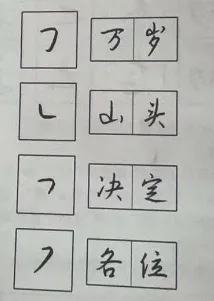 ㇆ 万岁
㇗ 山头
㇇ 决定
㇇ 各位